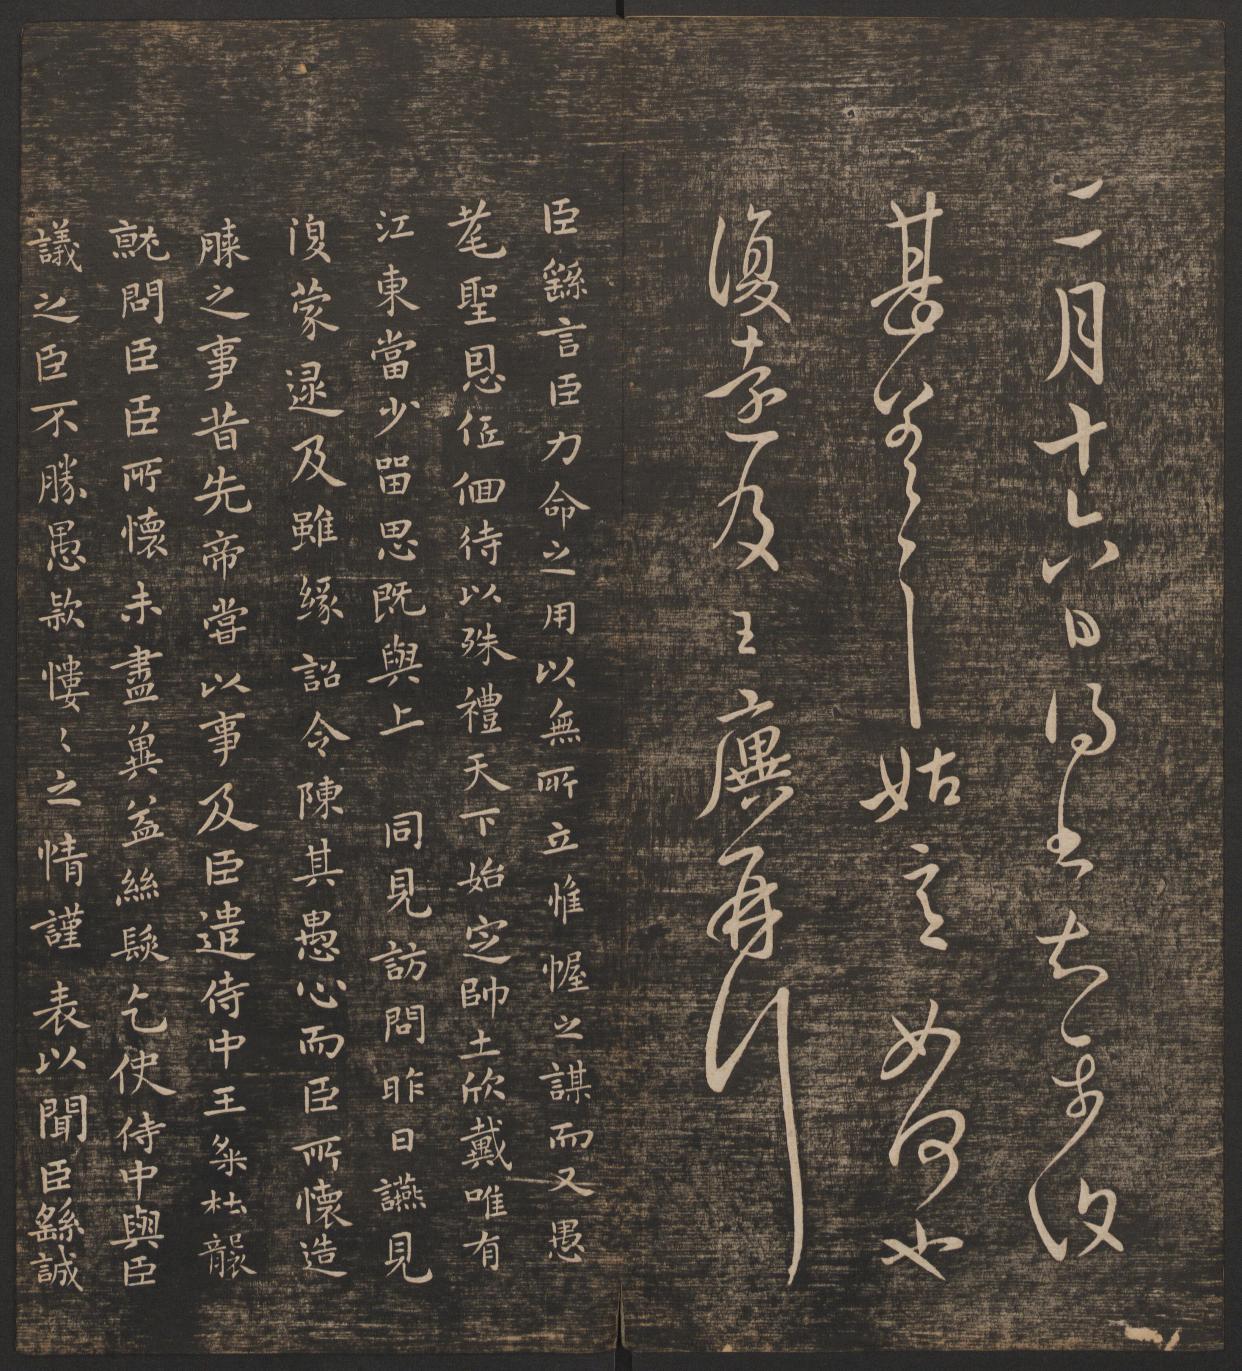 二月十六日得書知
甚々 姑言如何也
復 及 王廙再拜
臣繇言臣力命之用以無所立惟幄之謀而又愚
耄聖恩低佪待以殊禮天下始定帥土欣戴唯有
江東當少留思既與上 同見訪問昨日讌見
復蒙逮及雖緣 詔令陳其愚心而臣所懷造
膝之事昔先帝嘗以事及臣遣侍中王粲杜襲
就問臣臣所懷未盡冀益絲髮乞使侍中與臣
議之臣不勝愚款慺々之情謹 表以聞臣繇誠